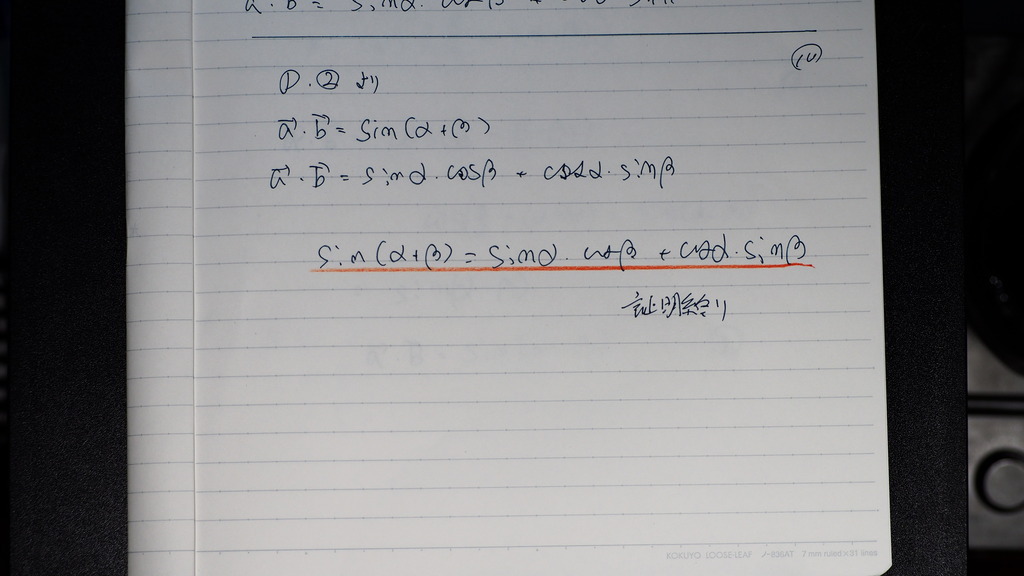 a⃗・b⃗ = sinα・cosβ + cosα sinβ
①・②より
a⃗・b⃗ = sin(α+β)
a⃗・b⃗ = sinα・cosβ + cosα・sinβ
sin(α+β) = sinα・cosβ + cosα・sinβ
証明終り
KOKUYO LOOSE-LEAF ノ-836AT 7 mm ruled×31 lines